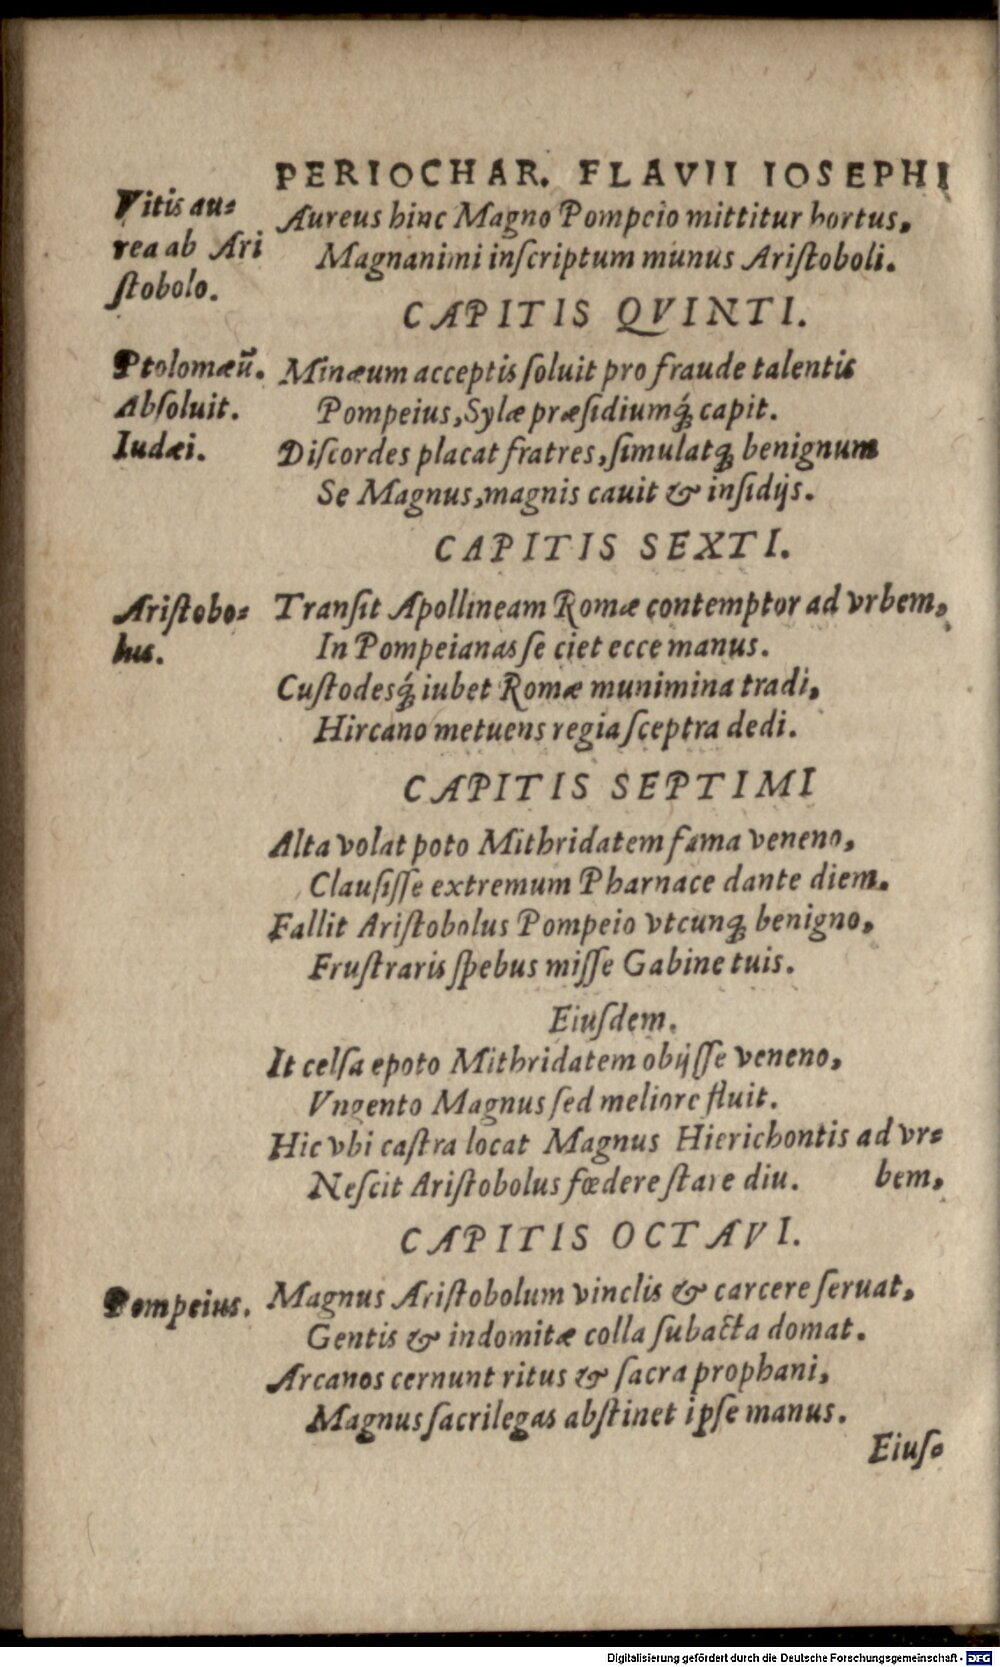 PERIOCHAR. FLAVII IOSEPHI
Vitis au=
rea ab Ari
ſtobolo.
Aureus hinc Magno Pompeio mittitur hortus,
Magnanimi inſcriptum munus Ariſtoboli.
CAPITIS QVINTI.
Ptolomæū.
Abſoluit.
Iudæi.
Minæum acceptis ſoluit pro fraude talentis
Pompeius, Sylæ præſidiumq́; capit.
Diſcordes placat fratres, ſimulatq; benignum
Se Magnus, magnis cauit & inſidijs.
CAPITIS SEXTI.
Ariſtobo=
lus.
Tranſit Apollineam Romæ contemptor ad vrbem,
In Pompeianas ſe ciet ecce manus.
Cuſtodesq́; iubet Romæ munimina tradi,
Hircano metuens regia ſceptra dedi.
CAPITIS SEPTIMI
Alta volat poto Mithridatem fama veneno,
Clauſiſſe extremum Pharnace dante diem.
Fallit Ariſtobolus Pompeio vtcunq; benigno,
Fruſtraris ſpebus miſſe Gabine tuis.
Eiuſdem.
It celſa epoto Mithridatem obijſſe veneno,
Vngento Magnus ſed meliore fluit.
Hic vbi caſtra locat Magnus Hierichontis ad vr=
Neſcit Ariſtobolus fœdere ſtare diu. bem,
CAPITIS OCTAVI.
Pompeius.
Magnus Ariſtobolum vinclis & carcere ſeruat,
Gentis & indomitæ colla ſubacta domat.
Arcanos cernunt ritus & ſacra prophani,
Magnus ſacrilegas abſtinet ipſe manus.
Eiuſ=
Digitalisierung gefördert durch die Deutsche Forschungsgemeinschaft - DFG